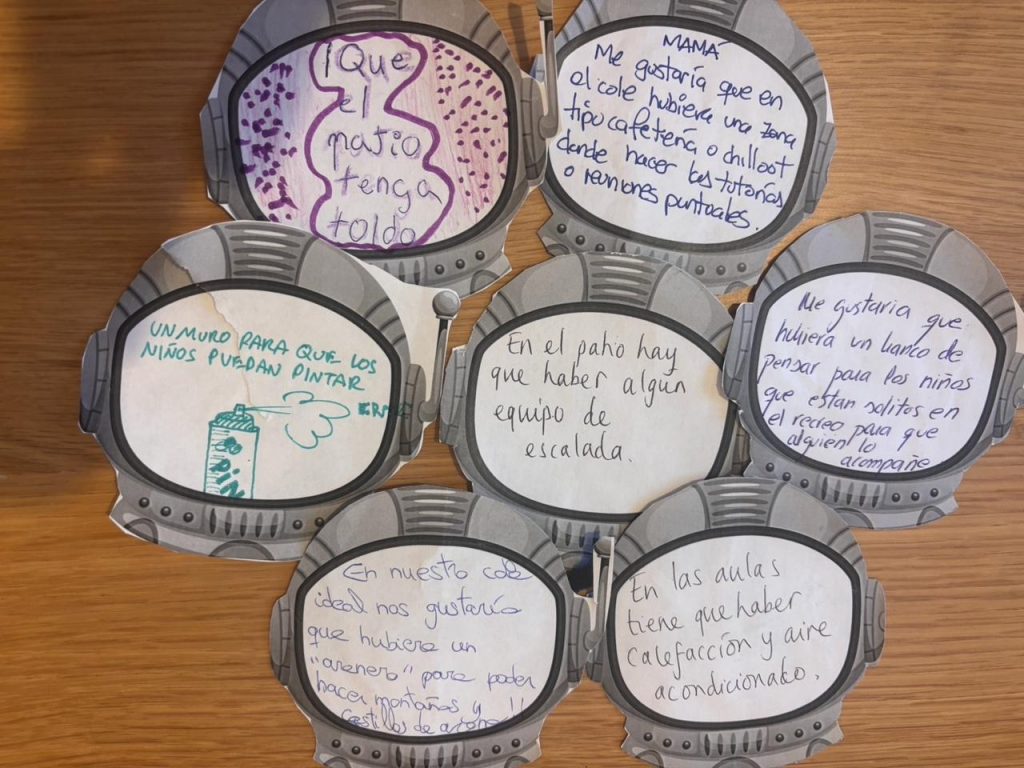 ¡Que
el
patio
tenga
toldo
MAMÁ
Me gustaría que en
el cole hubiera una zona
tipo cafetería o chilloot
donde hacer las tutorías
o reuniones puntuales.
UN MURO PARA QUE LOS
NIÑOS PUEDAN PINTAR
En el patio hay
que haber algún
equipo de
escalada.
Me gustaria que
hubiera un banco de
pensar para los niños
que estan solitos en
el recreo para que
alguien lo
acompañe
En nuestro cole
ideal nos gustaría
que hubiera un
"arenero" para poder
hacer montañas y
castillos de arena!!
En las aulas
tiene que haber
calefacción y aire
acondicionado.